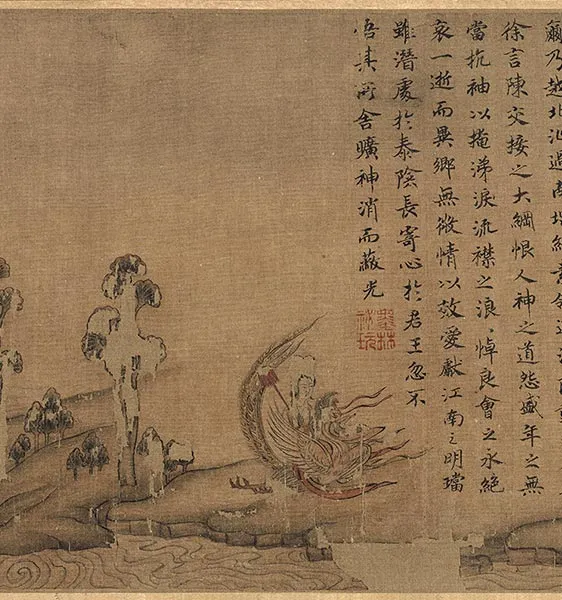 乃越北沚過南
徐言陳交接之大綱恨人神之道怨盛年之無
當抗袖以掩涕淚流襟之浪〻悼良會之永絕
哀一逝而異鄉無微情以效愛獻江南之明璫
雖潛處於泰陰長寄心於君王忽不
悟其所舍曠神消而蔽光